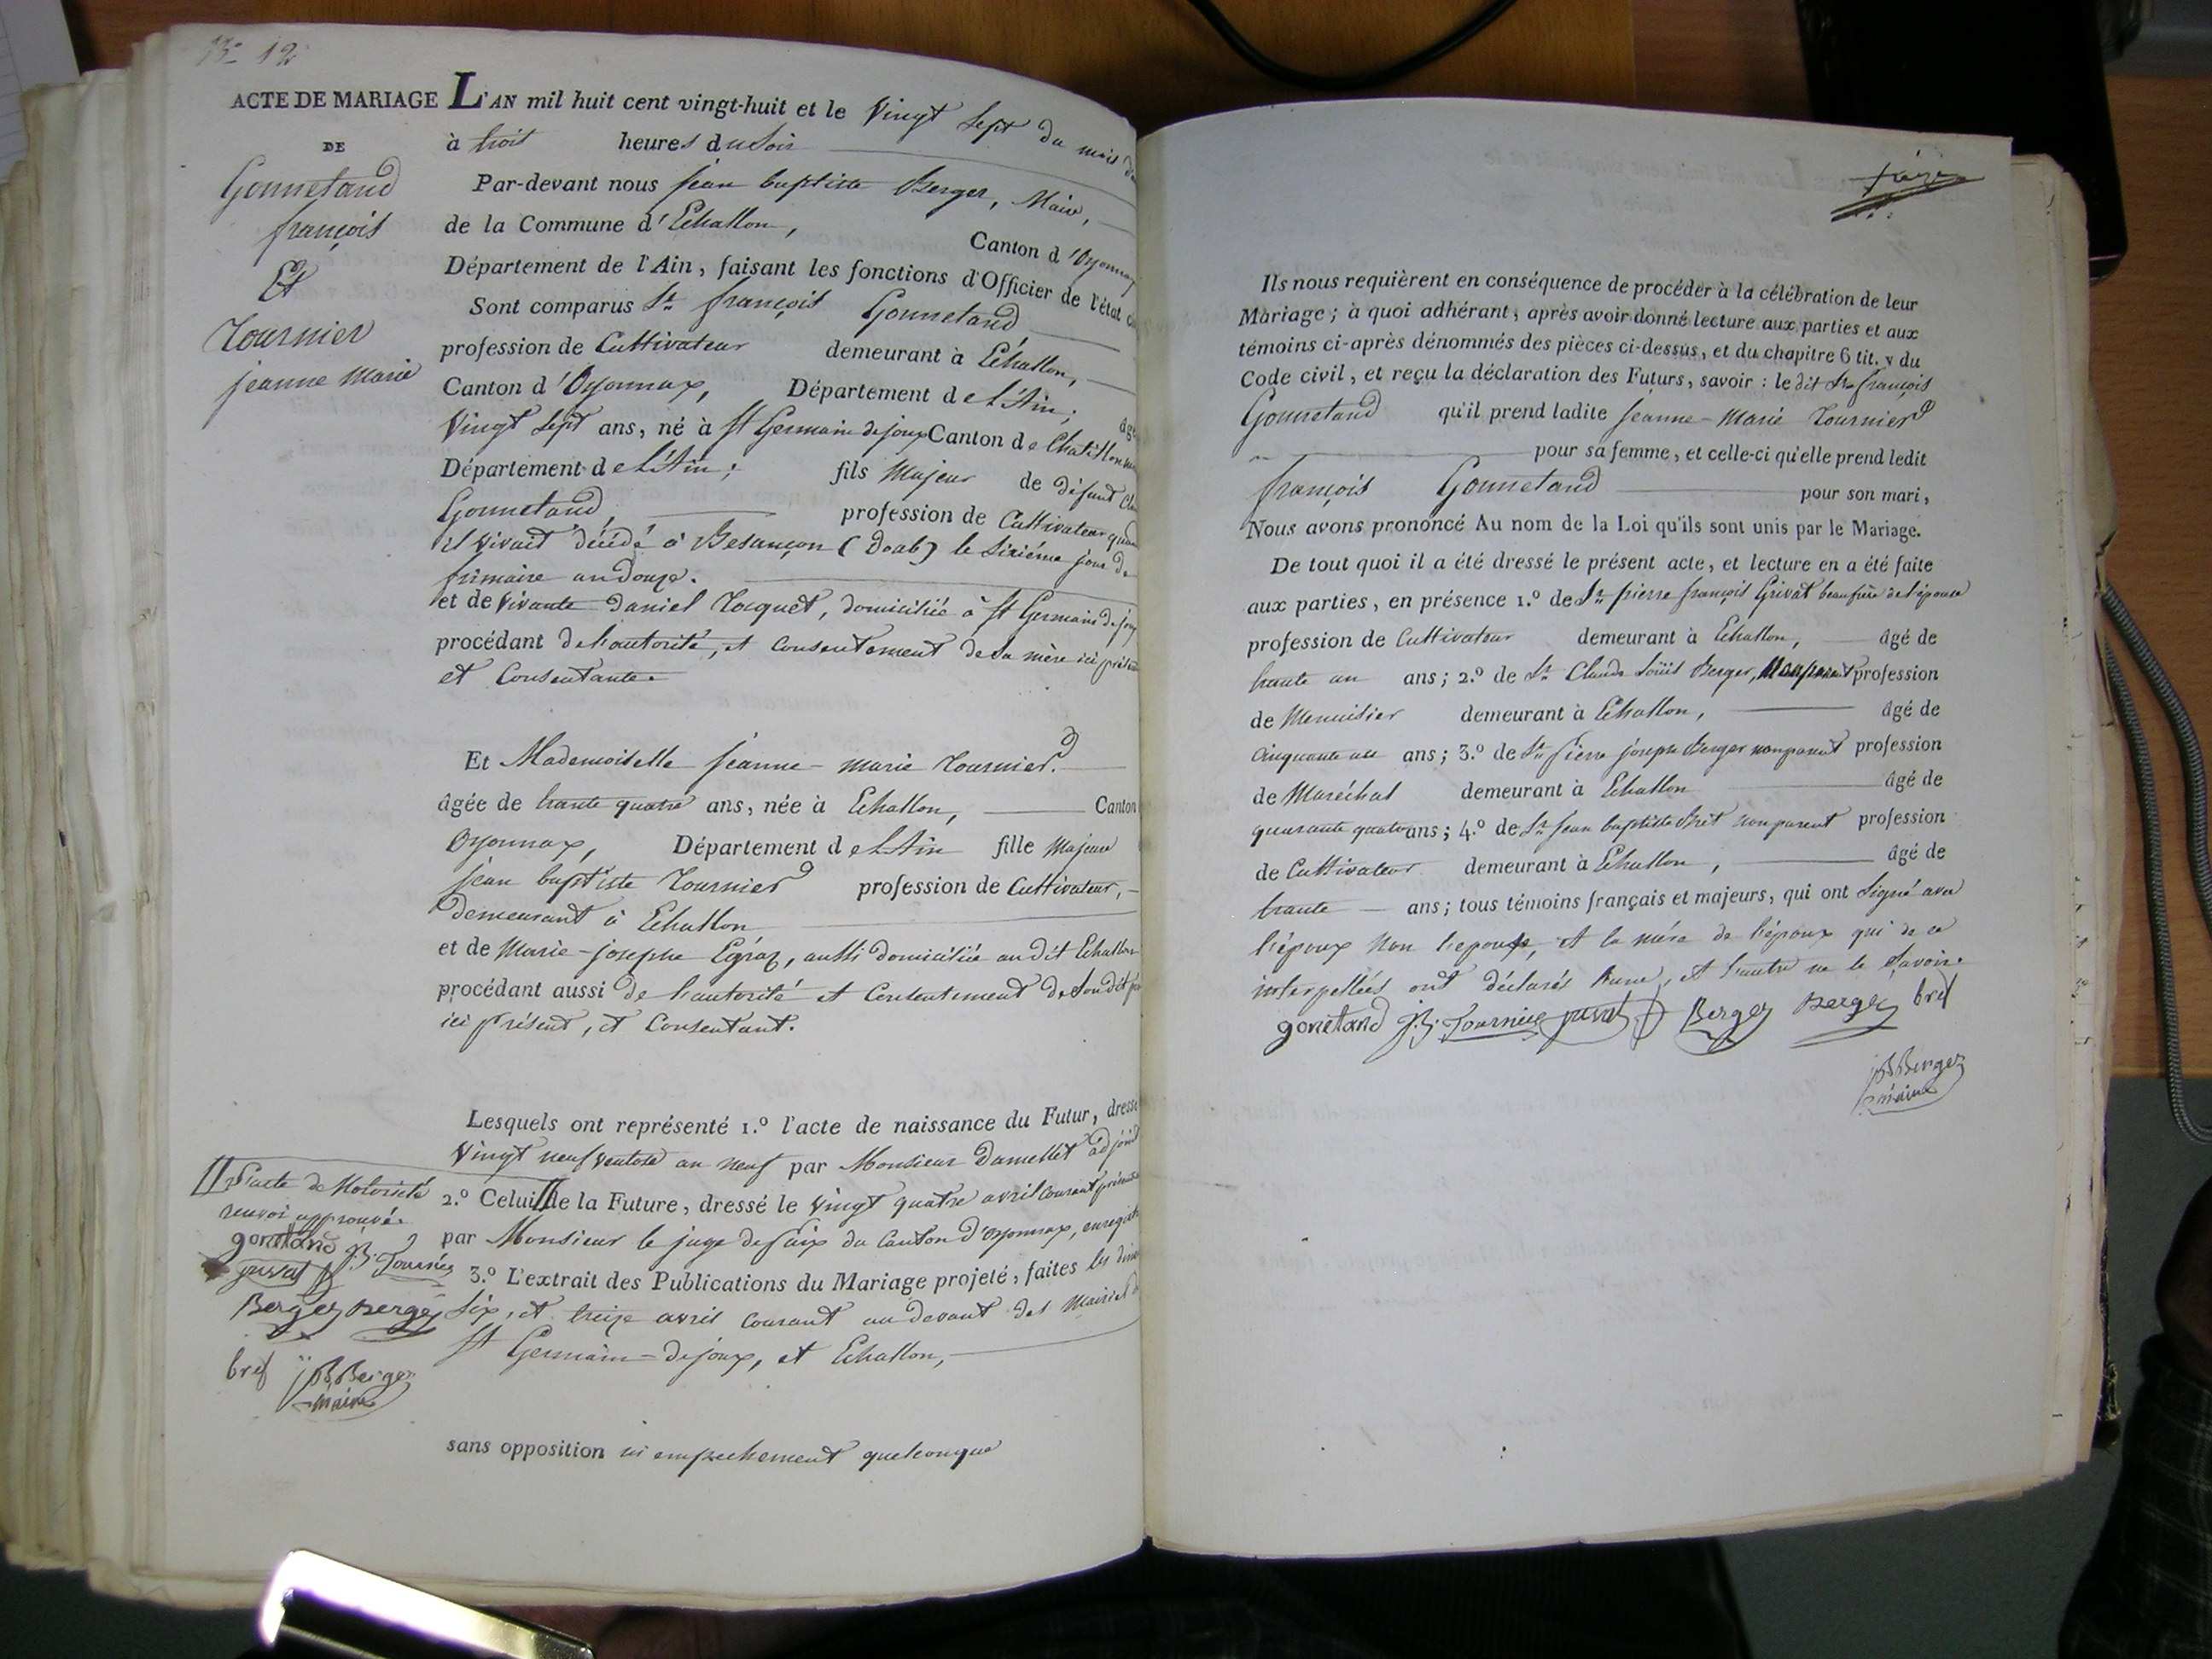 N.º 12
ACTE DE MARIAGE
DE
Gonnetand
françois
Et
Tournier
jeanne marie
L'AN mil huit cent vingt-huit et le Vingt Sept du mois d
à trois heures du Soir
Par-devant nous jean baptiste Berger, Maire,
de la Commune d'Echallon, Canton d'Oyonnax
Département de l'Ain, faisant les fonctions d'Officier de l'état
Sont comparus Sr. françois Gonnetand
profession de Cultivateur demeurant à Echallon,
Canton d'Oyonnax, Département de L'Ain, âgé
Vingt Sept ans, né à St Germain de joux Canton de Chatillon
Département de L'Ain; fils Majeur de défunt
Gonnetand, profession de Cultivateur quand
il vivait décédé à Besançon (Doub) le Sixiéme jour de
frimaire an douze.
et de Vivante daniel Tocquet, domiciliée à St Germain de joux
procédant de l'autorité, et Consentement de Sa mère ici présente
et Consentante.
Et Mademoiselle jeanne-marie Tournier.
âgée de trente quatre ans, née à Echallon, Canton
Oyonnax, Département de L'Ain fille Majeure
jean baptiste Tournier profession de Cultivateur,
demeurant à Echallon
et de Marie-josephe Egraz, aussi domiciliée au dit Echallon
procédant aussi de l'autorité et Consentement de Son dit père
ici présent, et Consentant.
Lesquels ont représenté 1.º l'acte de naissance du Futur, dressé
Vingt neuf Ventose an neuf par Monsieur Damellet adjoint
2.º Celui // de la Future, dressé le Vingt quatre avril Courant
par Monsieur le juge de paix du Canton d'Oyonnax, enregistré
3.º L'extrait des Publications du Mariage projeté, faites les
Six, et treize avril Courant au devant des Mairies de
St Germain-de joux, et Echallon,
sans opposition ni empechement quelconque
// L'acte de Notorieté
renvoi approuvé.
gonetand J.B. Tournier
Berger Berger
bret JB Berger
maire
Ils nous requièrent en conséquence de procéder à la célébration de leur
Mariage; à quoi adhérant, après avoir donné lecture aux parties et aux
témoins ci-après dénommés des pièces ci-dessus, et du chapitre 6 tit. v du
Code civil, et reçu la déclaration des Futurs, savoir : le dit Sr françois
Gonnetand qu'il prend ladite jeanne-Marie Tournier
pour sa femme, et celle-ci qu'elle prend ledit
françois Gonnetand pour son mari,
Nous avons prononcé Au nom de la Loi qu'ils sont unis par le Mariage.
De tout quoi il a été dressé le présent acte, et lecture en a été faite
aux parties, en présence 1.º de Sr. pierre françois Grivat beaufrère de l'épouse
profession de Cultivateur demeurant à Echallon, âgé de
trente un ans; 2.º de Sr. Claude Loüis Berger, Non parent profession
de Menuisier demeurant à Echallon, âgé de
Cinquante ans; 3.º de Sr. pierre joseph Berger non parent profession
de Maréchal demeurant à Echallon âgé de
quarante quatre ans; 4.º de Sr. jean baptiste Bret non parent profession
de Cultivateur demeurant à Echallon, âgé de
trente ans; tous témoins français et majeurs, qui ont Signé avec
l'époux Non l'epouse, et la mére de l'époux qui de ce
interpellées ont déclarés l'une, et l'autre ne le Savoir.
gonetand J.B. Tournier Berger Berger bret
JB Berger
maire